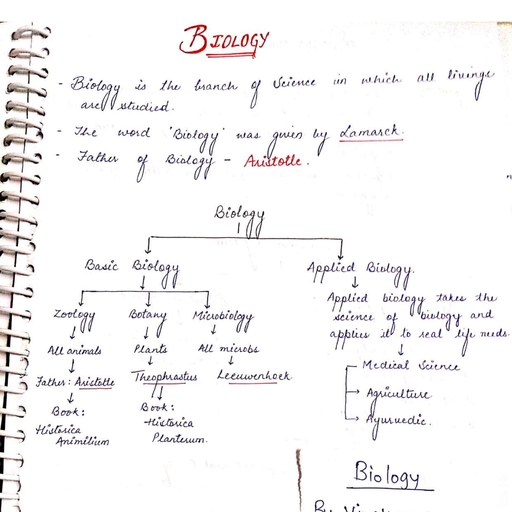 BIOLOGY
- Biology is the branch of Science in which all livings
are studied.
- The word 'Biology' was given by Lamarck.
- Father of Biology - Aristotle.
Biology
Basic Biology
Applied Biology.
Applied biology takes the
science of biology and
applies it to real life needs.
Zoology Botany Microbiology
All animals Plants All microbs
Father: Aristotle Theophrastus Leeuwenhoek
Book:
Historica
Animilium
Book:
Historica
Planterum.
Medical Science
Agriculture
Ayurvedic.
Biology
By